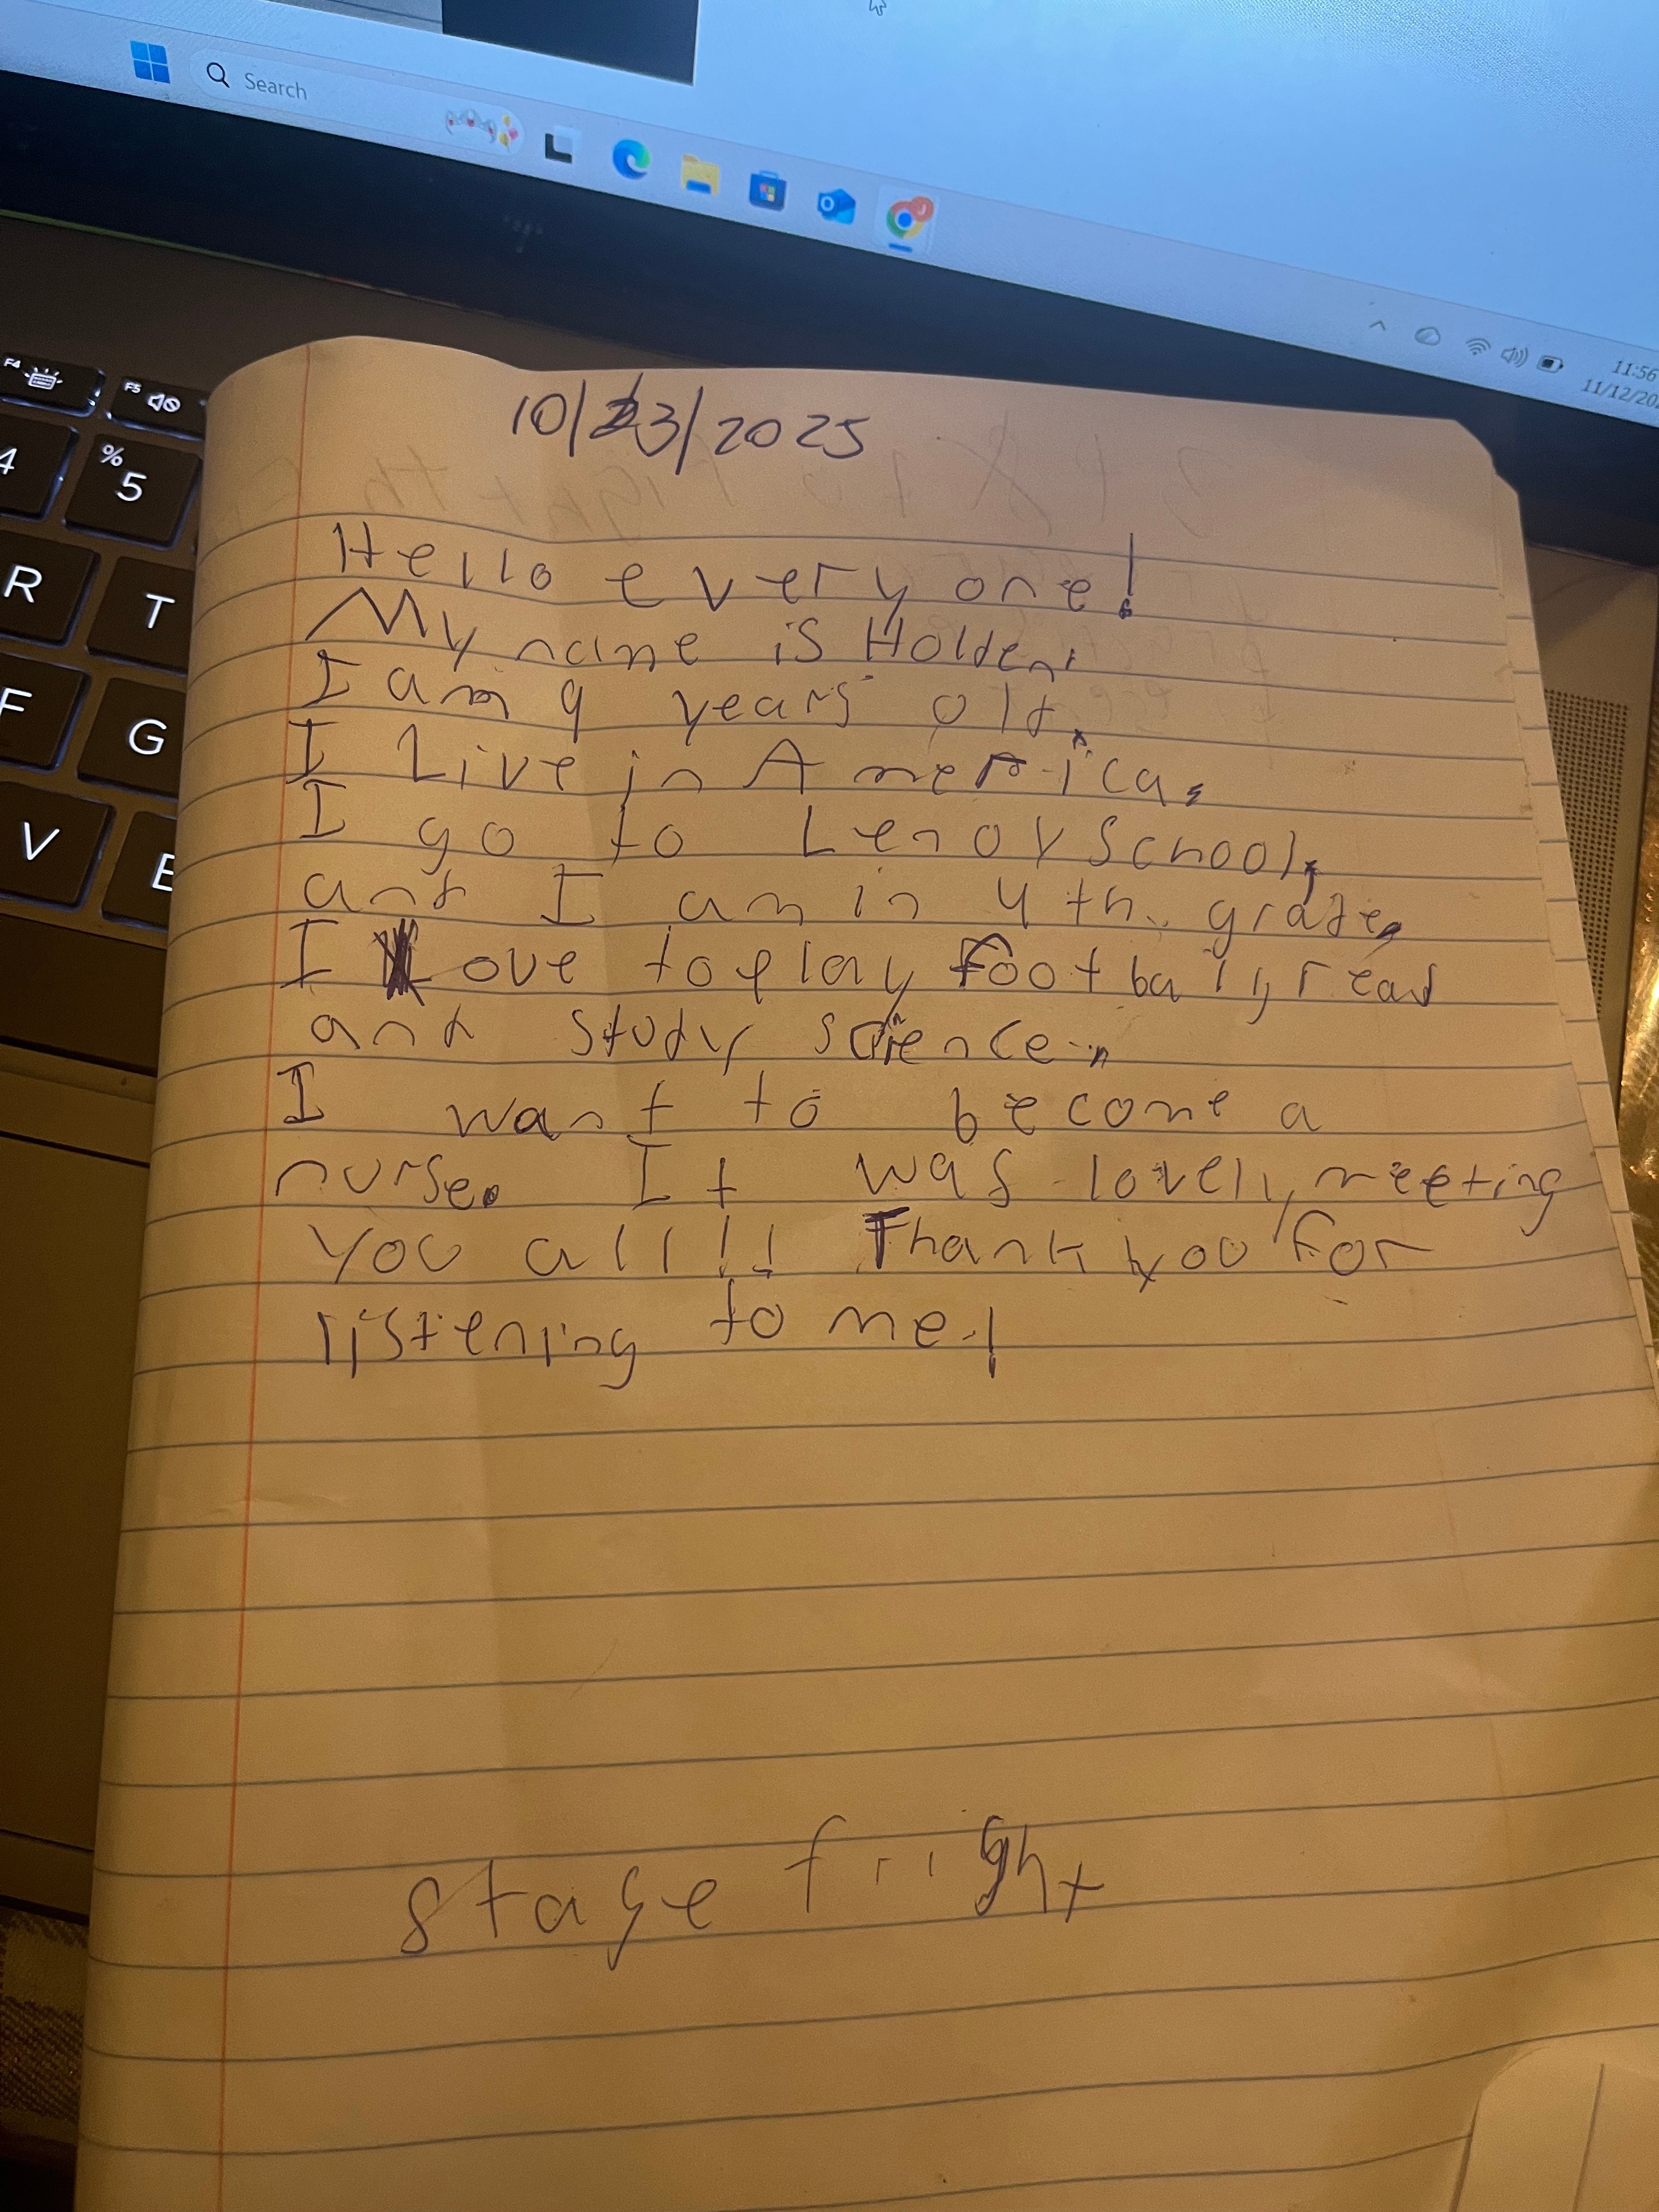 Search
11:56
11/12/20
F4
F5
4
%
5
R
T
F
G
V
10/23/2025
Hello everyone!
My name is Holden.
I am 9 years old.
I Live in America.
I go to School,
and I am in 4th. grade.
I Love to play football, read
and study science.
I want to become a
nurse. It was lovely meeting
you all!! Thank you for
listening to me!
stage fright